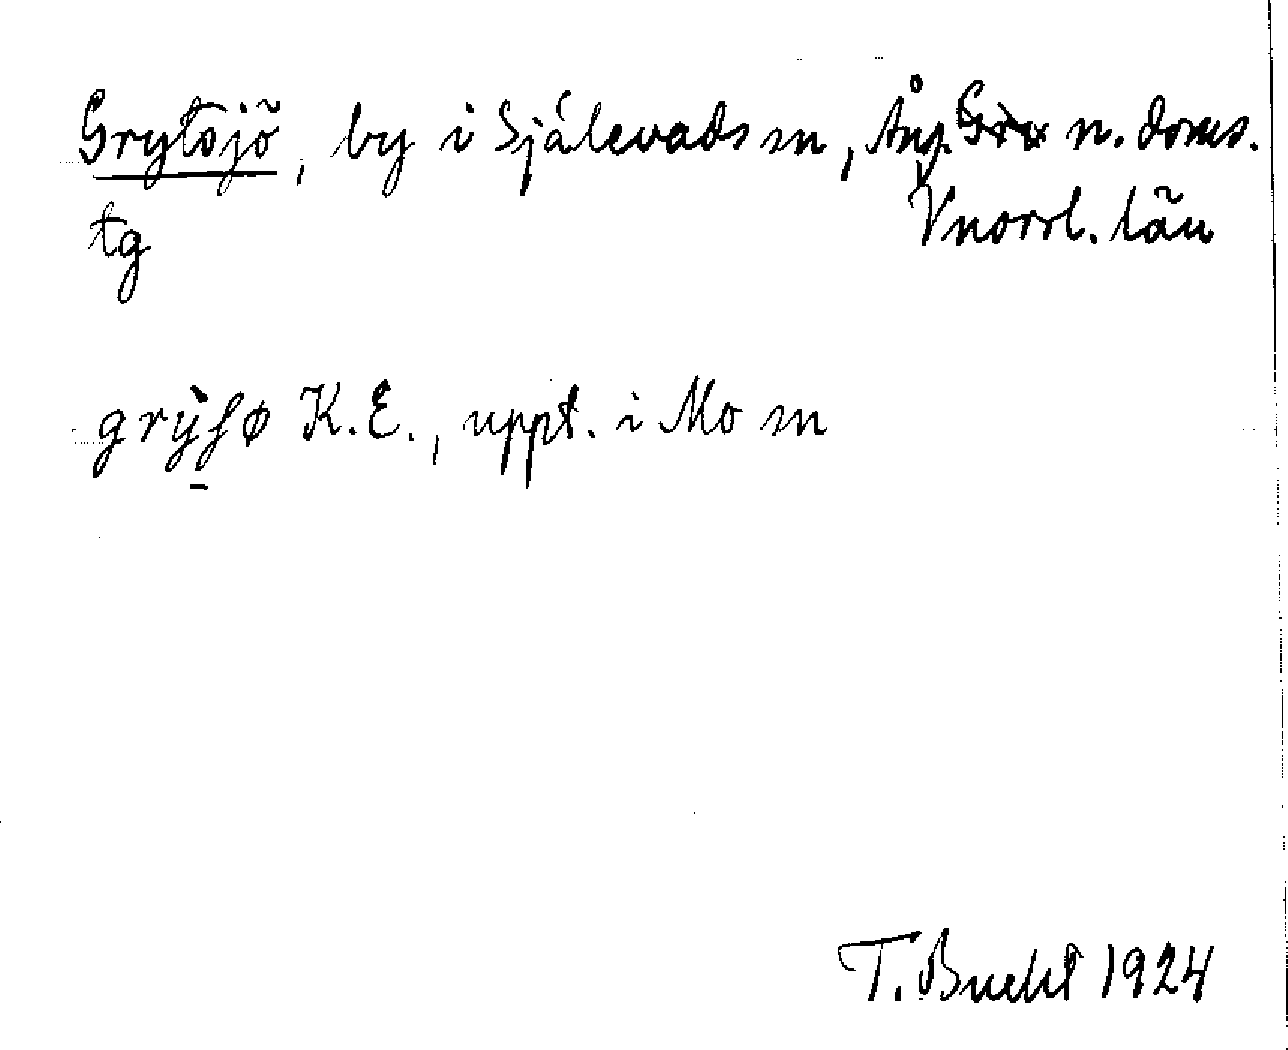 Grytsjö, by i Själevads sn, Ång. n. doms.
tg Vnorrl. län
grỳsø K.E., uppt. i Mo sn
T. Bucht 1924